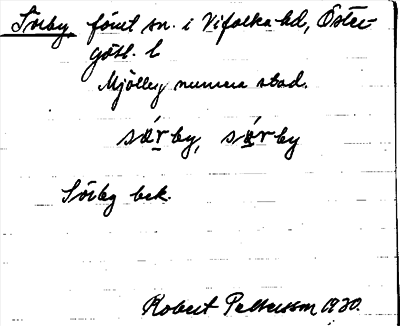 Sörby, förut sn. i Vifolka hd, Öster-
götl. l
Mjölby numera stad.
sö́rby, sö́rby
Sörby bek.
Robert Pettersson 1930.